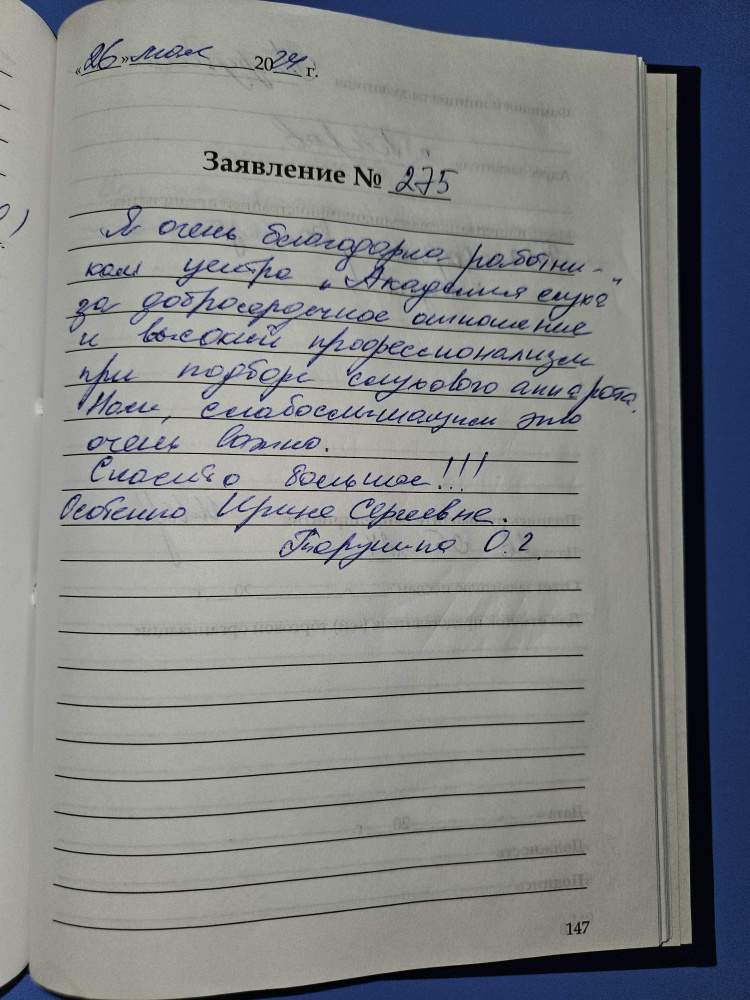 «26» мая 2024 г.
Заявление № 275
Я очень благодарна работни-
кам центра „Академия слуха"
за добросердечное отношение
и высокий профессионализм
при подборе слухового аппарата.
Нам, слабослышащим это
очень важно.
Спасибо большое!!!
Особенно Ирине Сергеевне.
О.Г.
147